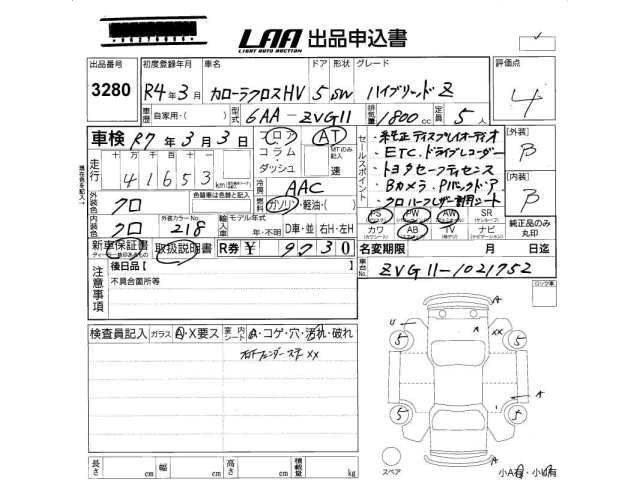 LAA 出品申込書
LIGHT AUTO AUCTION
出品番号 初度登録年月 車名 ドア 形状 グレード 評価点
3280 R4年3月 カローラクロスHV 5 SW ハイブリッド Z 4
車歴 自家用・( ) 型式 6AA-ZVG11 排気量 1800cc 定員 5人
車検 R7年3月3日 フロア AT
コラム MTのみ記入
ダッシュ 速
走行 十万 万 千 百 十
41653 km
現在色を記入
セールスポイント
・純正ディスプレイオーディオ
・ETC.ドライブレコーダー
・トヨタセーフティセンス
・Bカメラ.Pバックドア
・クロハーフレザー調シート
[外装] B
[内装] B
冷房 AAC
外装色 クロ 色替車は色替と記入 燃料 ガソリン・軽油・( )
PS PW AW SR
(パワステ) (サンルーフ) 純正品のみ丸印
内装色 クロ 外装カラーNo. 218 輸入車 モデル年式 年・不明 D車・並 右H・左H
カワ AB TV ナビ
新車保証書 取扱説明書 R券 ¥ 9730 名変期限 月 日迄
車台No. ZVG11-1021752
注意事項 後日品【 】
不具合箇所等
ロック車
検査員記入 ガラス A・X要ス 室内シート A・コゲ・穴・汚れ・破れ
フロントフェンダー ステー XX
A
U A XX
5 5
A
5 5
スペア
小A有・小U有
長さ cm 幅 cm 高さ cm 積載量 kg